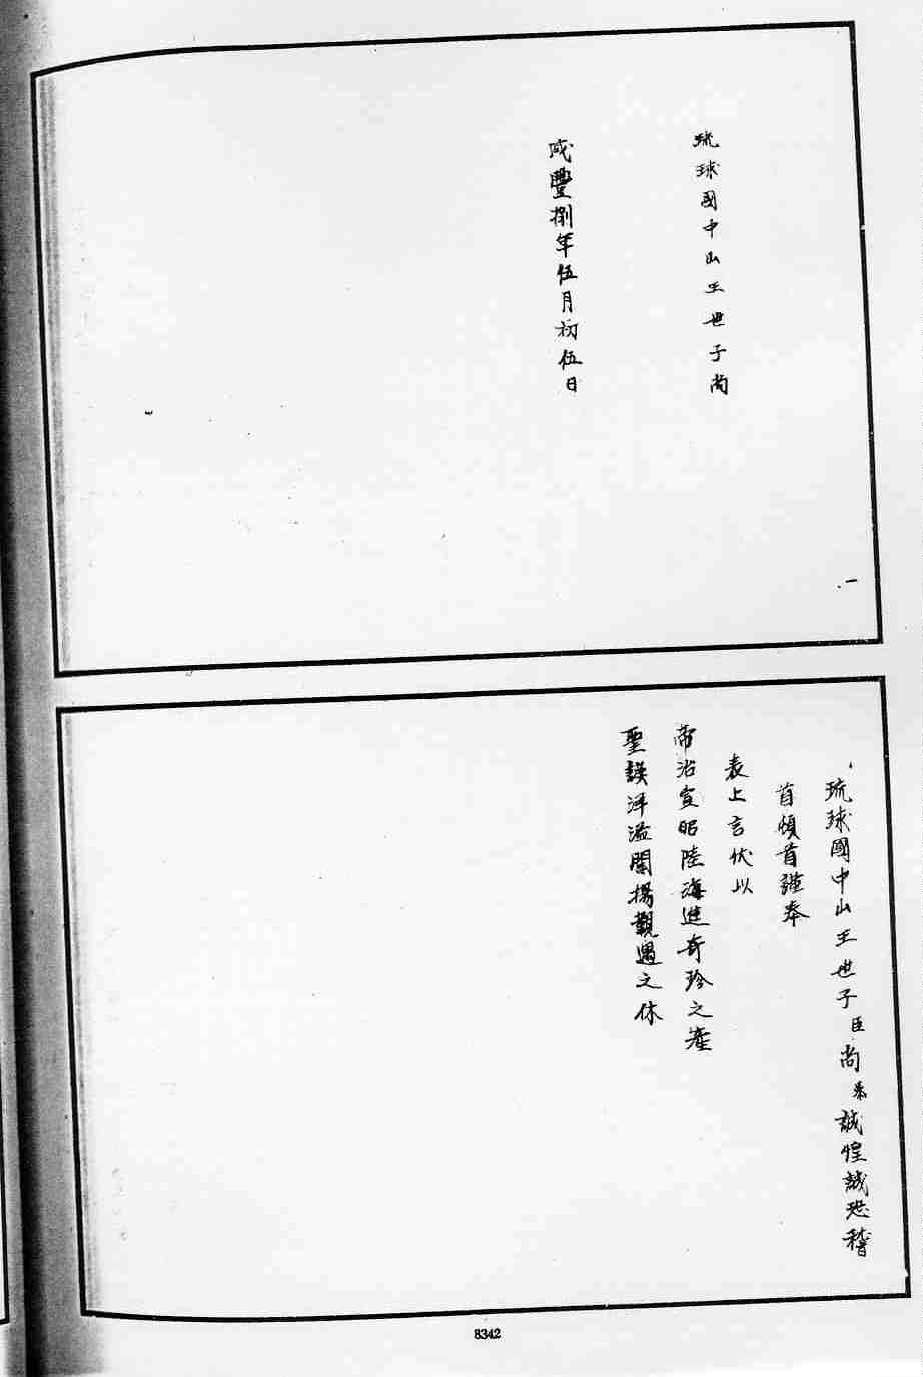 琉球國中山王世子尚
咸豐捌年伍月初伍日
琉球國中山王世子臣尚泰誠惶誠恐稽
首頓首謹奉
表上言伏以
帝治宣昭陸海進奇珍之產
聖謨洋溢闇揚覲遇之休
8342